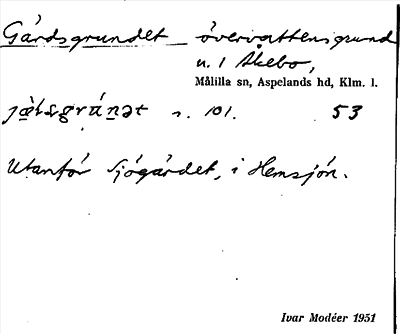 Gårdsgrundet övervattensgrund
u. 1 Åkebo,
Målilla sn, Aspelands hd, Klm. l.
s. 101. 53
Utanför Sjögärdet, i Hemsjön.
Ivar Modéer 1951